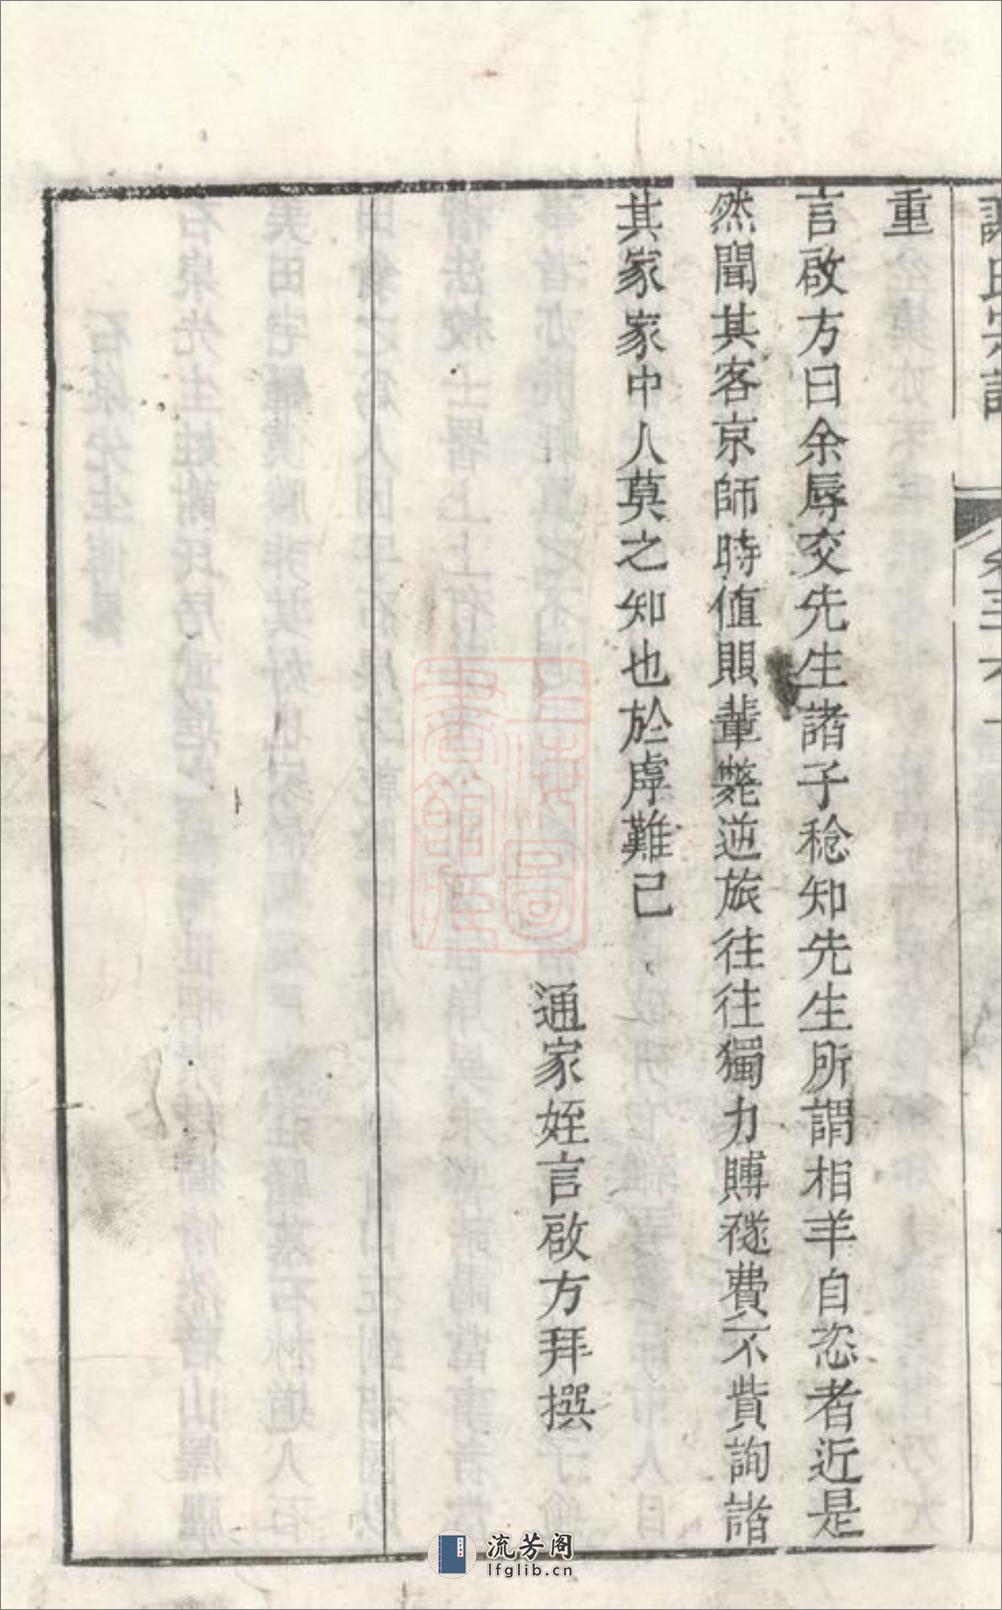 重
言啟方曰余辱交先生諸子稔知先生所謂相羊自恣者近是
然聞其客京師時值賏輩斃逆旅往往獨力賻禭費不貲詢諸
其家家中人莫之知也於虖難已
通家姪言啟方拜撰
流芳阁
lfglib.cn